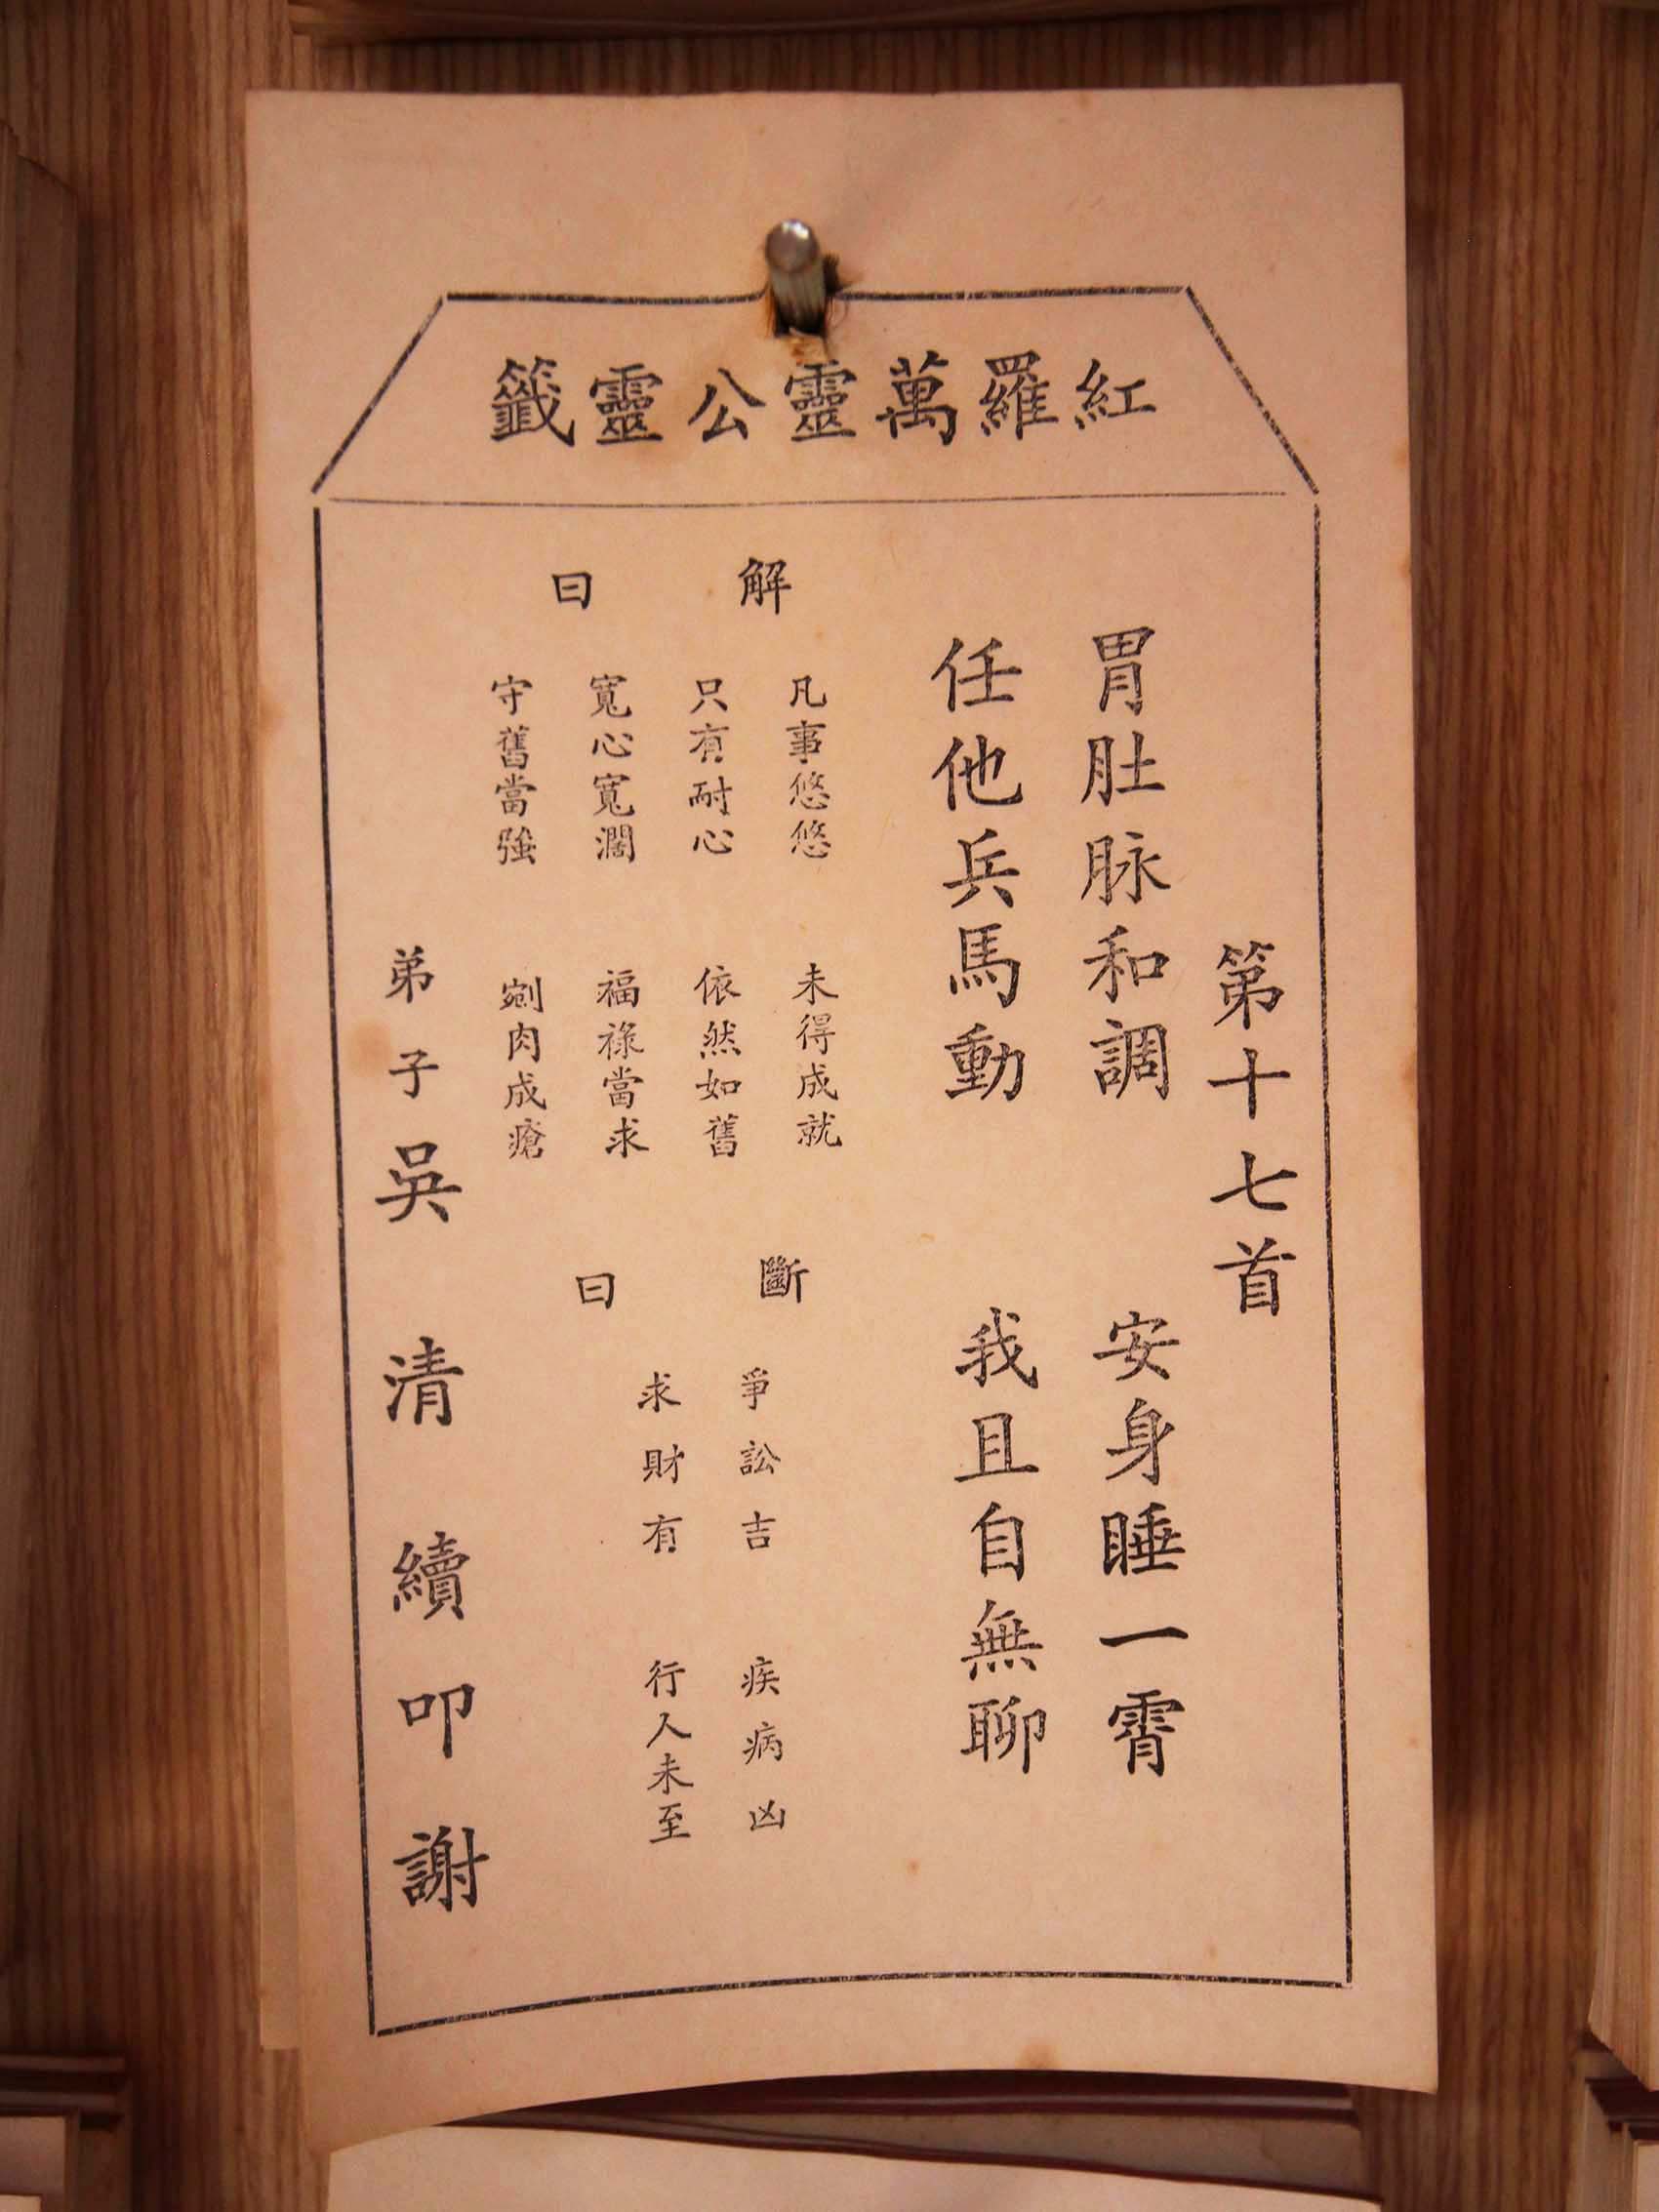 紅羅萬靈公靈籤
第十七首
胃肚脉和調　安身睡一霄
任他兵馬動　我且自無聊
解曰
凡事悠悠　未得成就
只有耐心　依然如舊
寬心寬濶　福祿當求
守舊當強　剜肉成瘡
斷曰
爭訟吉　疾病凶
求財有　行人未至
弟子吳清續叩謝